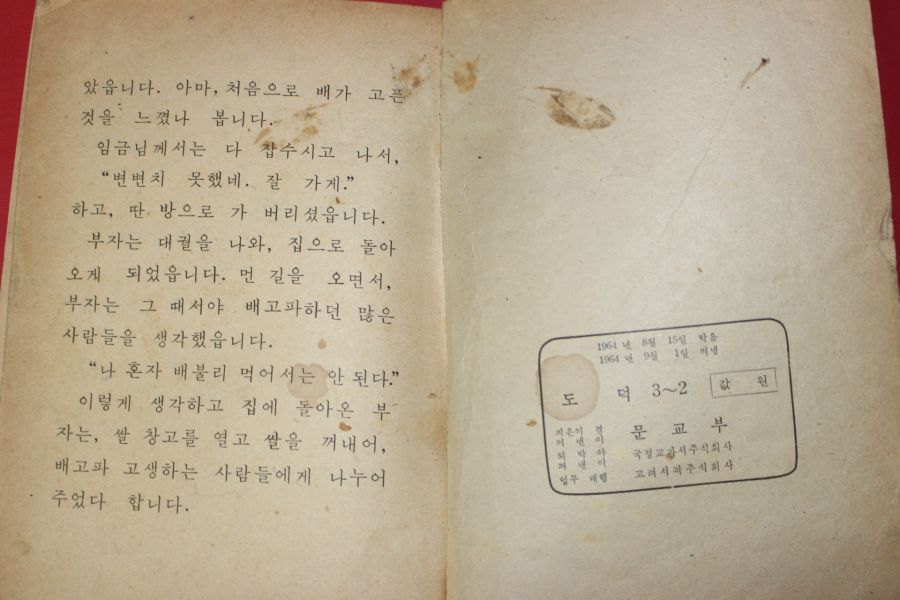 았읍니다. 아마, 처음으로 배가 고픈
것을 느꼈나 봅니다.
임금님께서는 다 잡수시고 나서,
“변변치 못했네. 잘 가게.”
하고, 딴 방으로 가 버리셨읍니다.
부자는 대궐을 나와, 집으로 돌아
오게 되었읍니다. 먼 길을 오면서,
부자는 그 때서야 배고파하던 많은
사람들을 생각했읍니다.
“나 혼자 배불리 먹어서는 안 된다.”
이렇게 생각하고 집에 돌아온 부
자는, 쌀 창고를 열고 쌀을 꺼내어,
배고파 고생하는 사람들에게 나누어
주었다 합니다.
1964 년 8월 15일 박음
1964 년 9월 1일 펴냄
도 덕 3~2 값 원
지은이 겸
펴낸이 문교부
되박아
펴낸이 국정교과서주식회사
업무 대행 고려서적주식회사